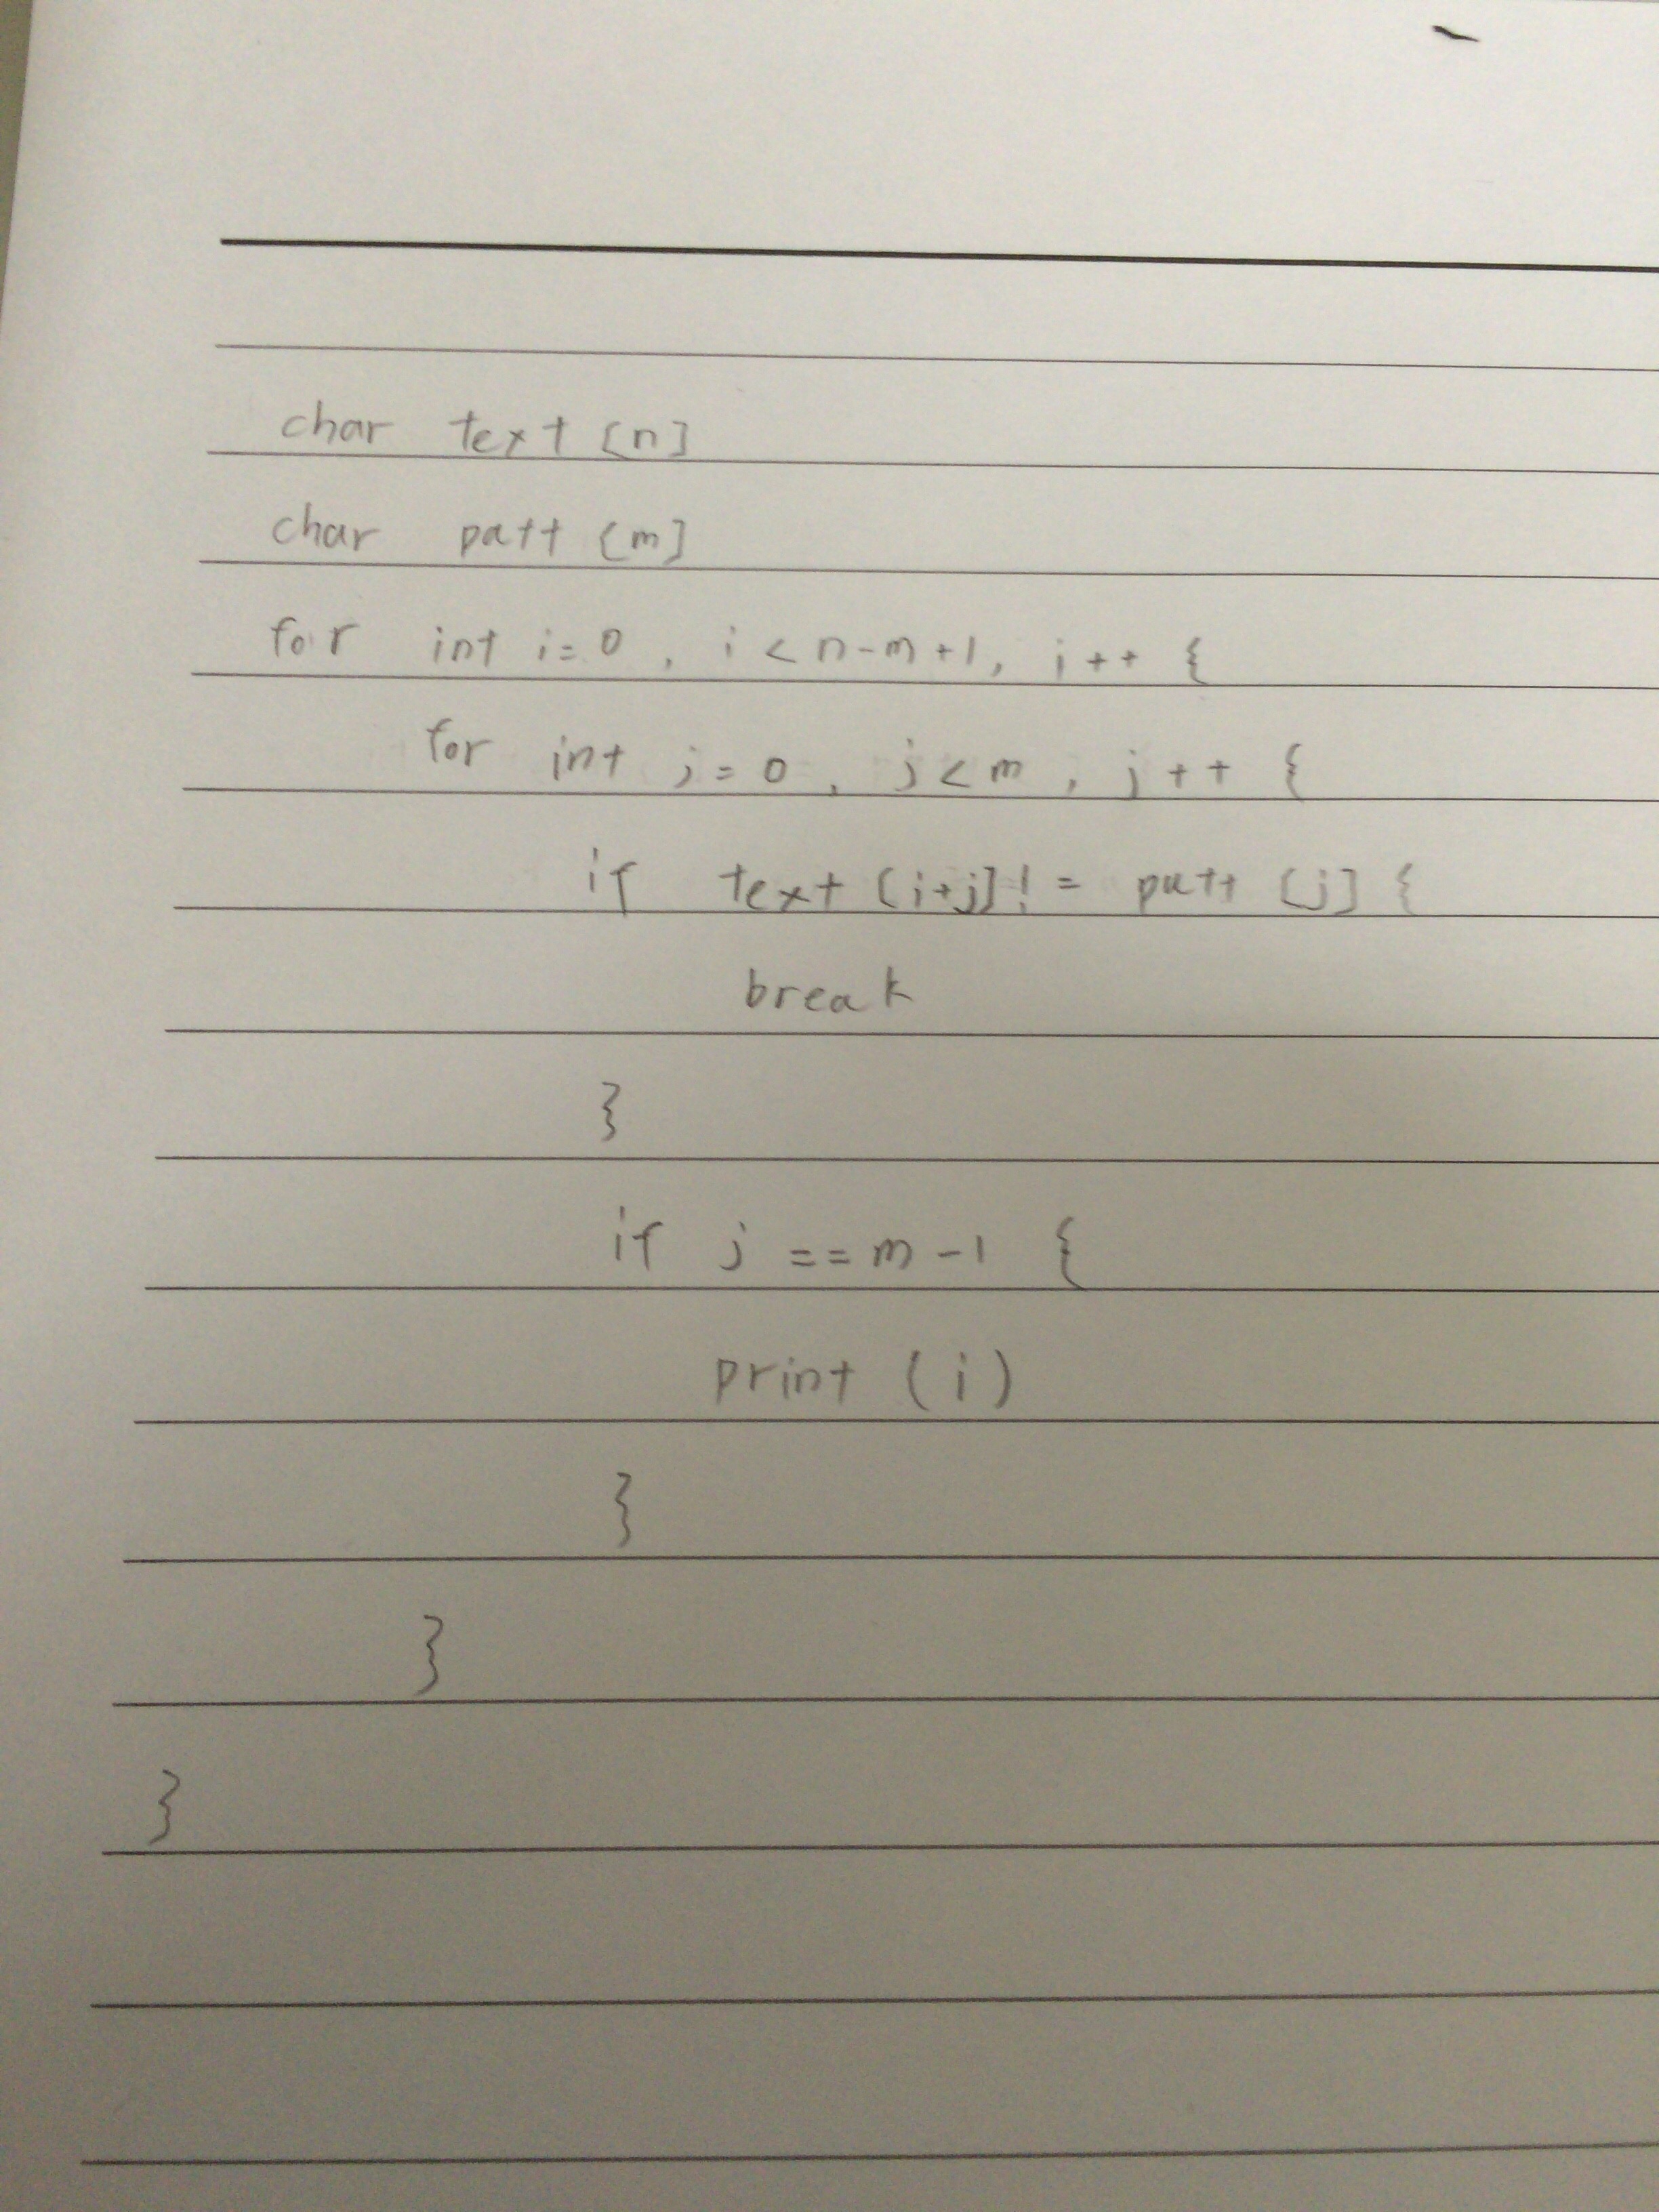 char text [n]
char patt [m]
for int i=0, i<n-m+1, i++ {
for int j=0, j<m, j++ {
if text [i+j] != patt [j] {
break
}
if j == m-1 {
print (i)
}
}
}